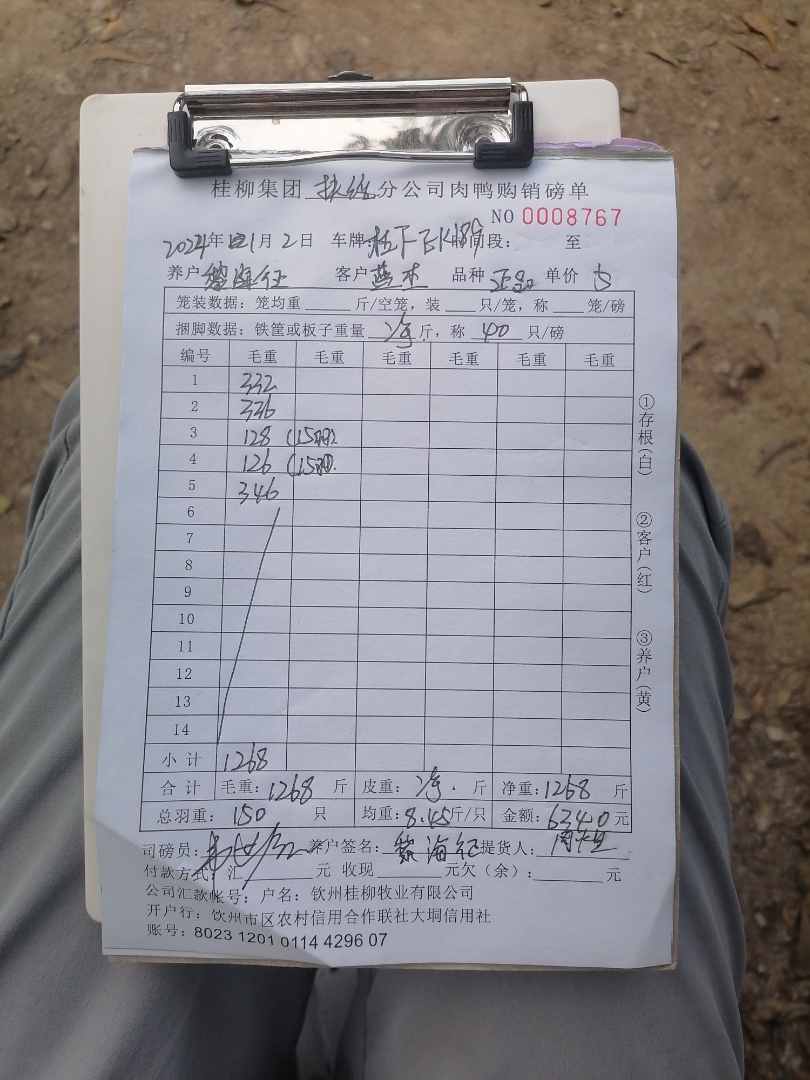 桂柳集团 分公司肉鸭购销磅单
NO 0008767
2024年 1月 2日 车牌: 时间段: 至
养户 黎海征 客户 蓝杰 品种 正品 单价 5
笼装数据: 笼均重 斤/空笼, 装 只/笼, 称 笼/磅
捆脚数据: 铁筐或板子重量 净 斤, 称 40 只/磅
编号 毛重 毛重 毛重 毛重 毛重 毛重
1 332
2 336
3 128 (15只)
4 126 (15只)
5 346
6
7
8
9
10
11
12
13
14
小计 1268
合计 毛重: 1268 斤 皮重: 净 斤 净重: 1268 斤
总羽重: 150 只 均重: 8.45斤/只 金额: 6340元
司磅员: 养户签名: 黎海征 提货人:
付款方式: 汇 元 收现 元欠(余): 元
公司汇款帐号: 户名: 钦州桂柳牧业有限公司
开户行: 钦州市区农村信用合作联社大垌信用社
账号: 8023 1201 0114 4296 07
①存根(白)
②客户(红)
③养户(黄)